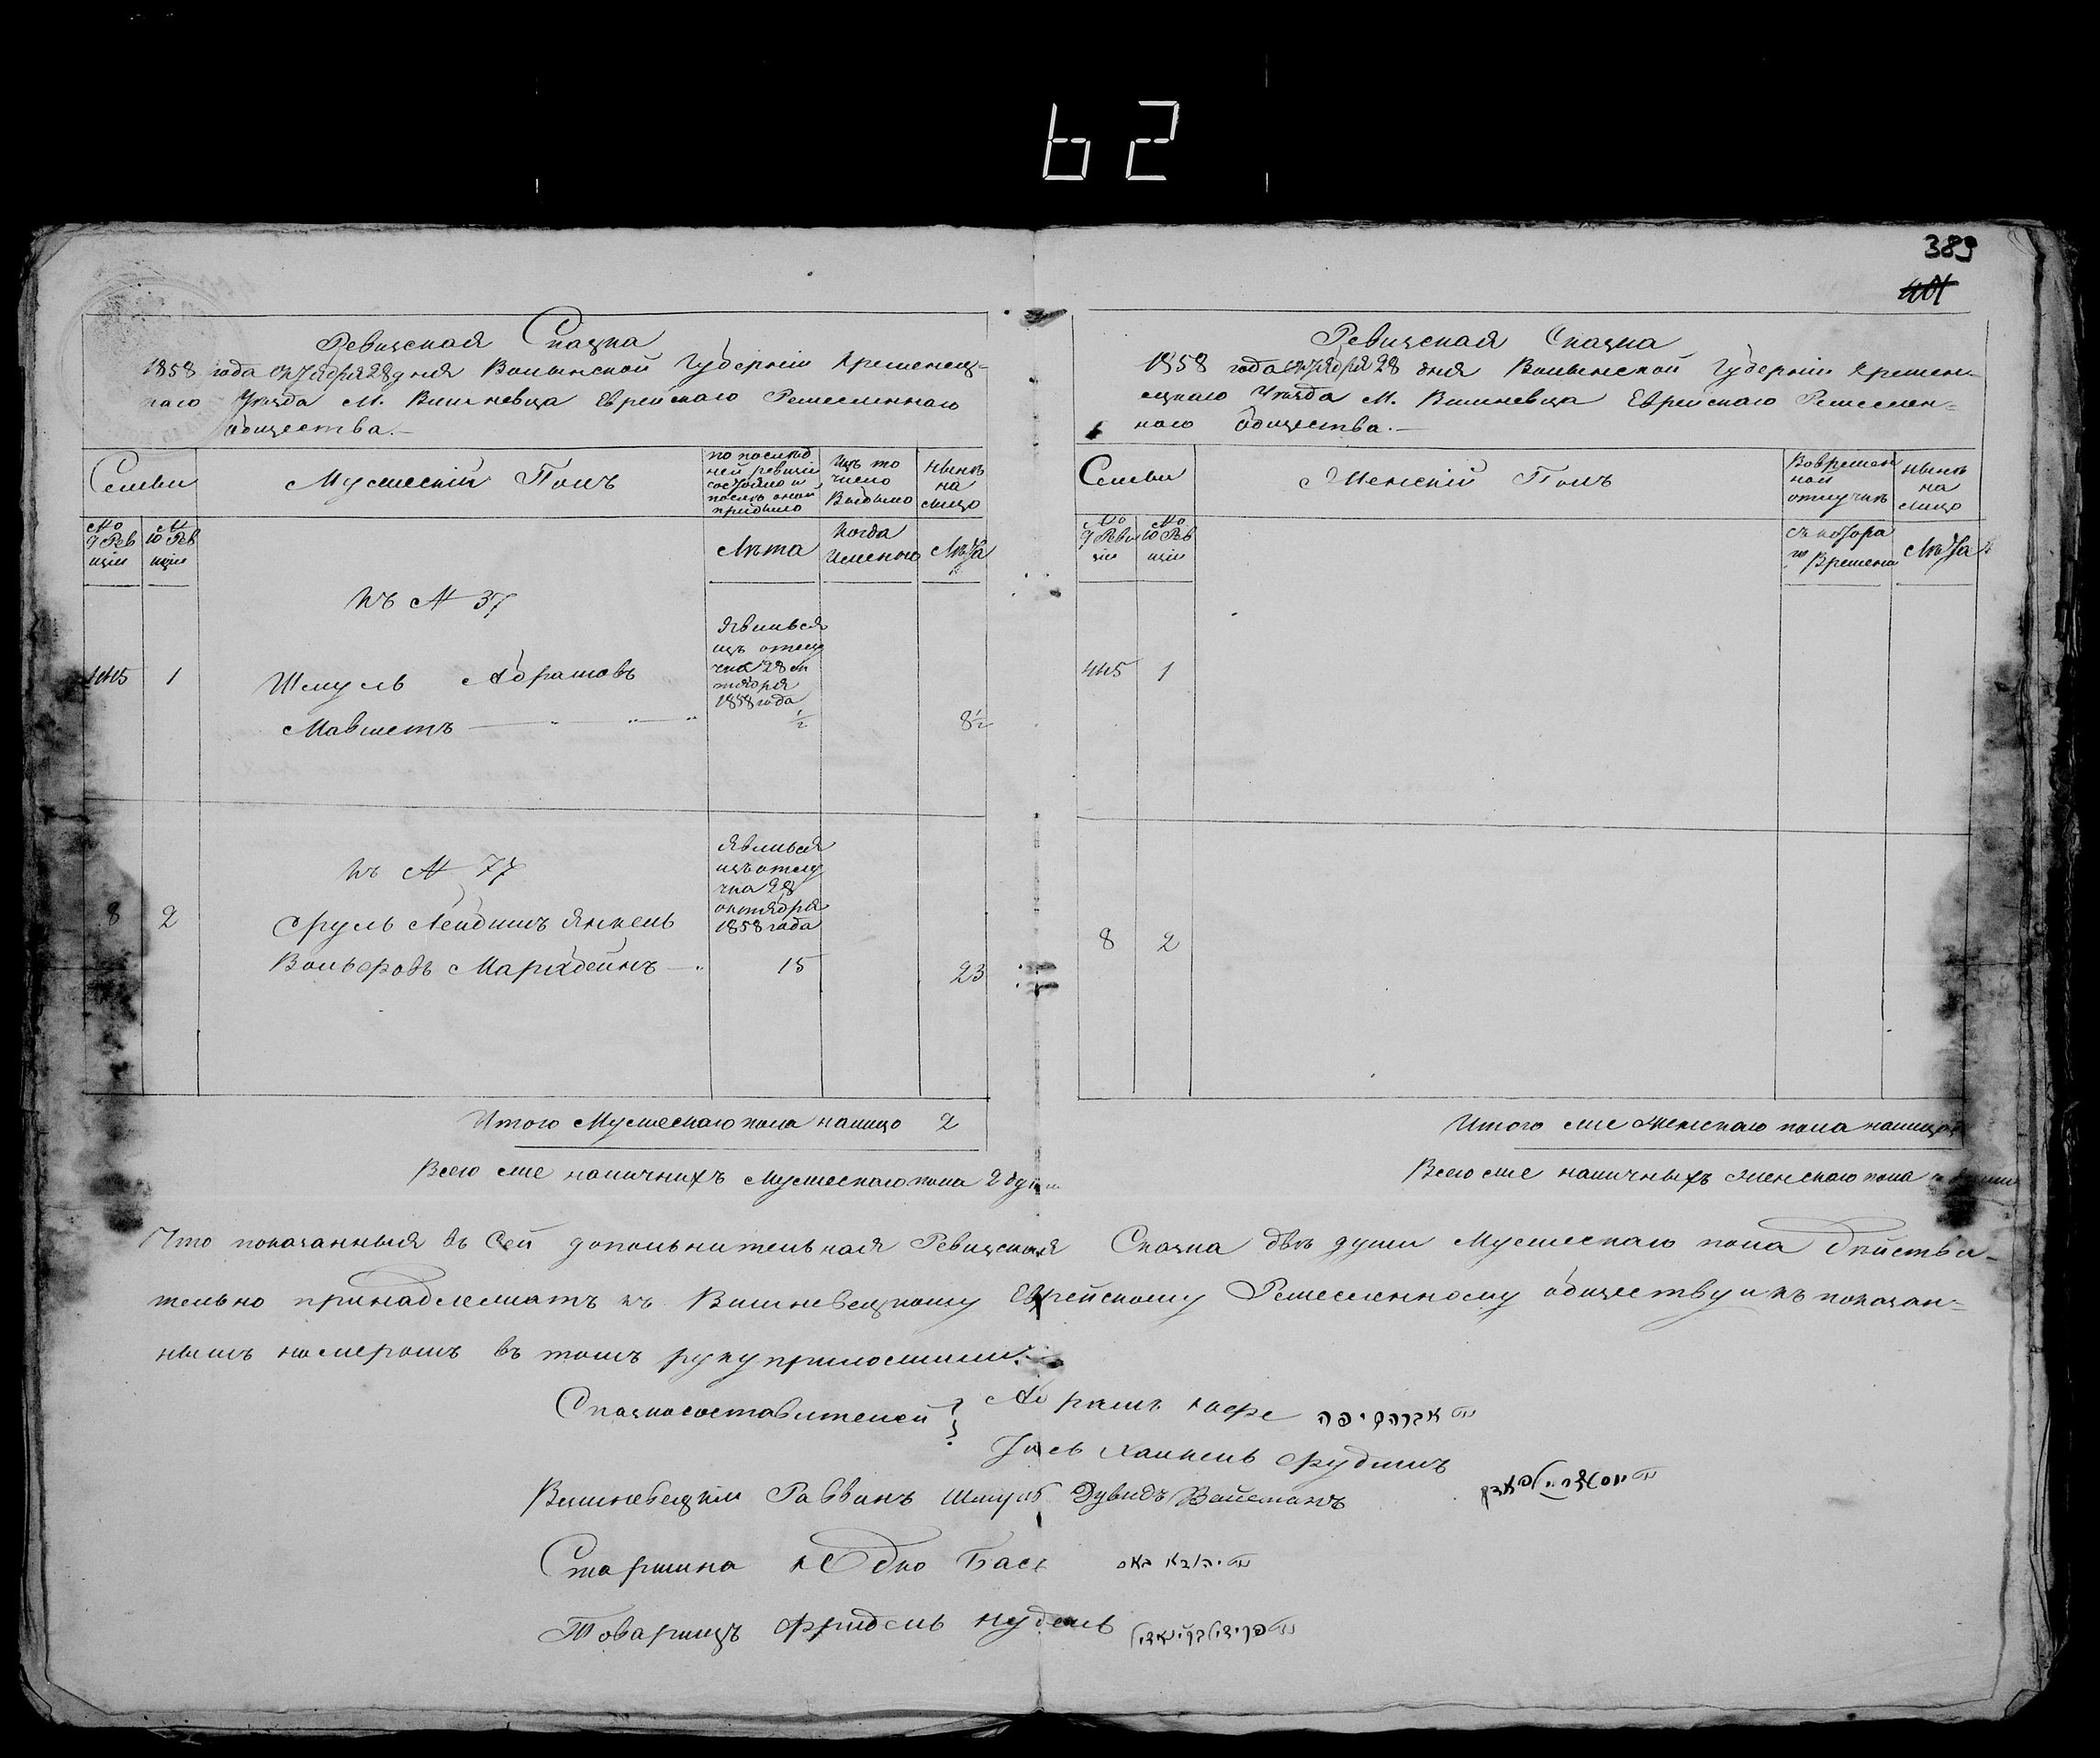 62
389
Ревизская Сказка
1858 года октября 28 дня Волынской Губерніи Кременец-
каго Уѣзда М. Вишневца Еврейскаго Ремесленнаго
общества.—
Семьи
Мужескій Полъ
по послѣд
ней ревизіи
состояло и
послѣ оной
прибыло
изъ то
числа
выбыло
нынѣ
на
лицо
№
9 Рев
изіи
№
10 Рев
изіи
Лѣта
Когда
именно
Лѣта
Къ № 37
445 1
Шмуль Абрамовъ
явился
изъ отлу
чки 28 ок
тября
1858 года
½ 8½
Къ № 77
8 2
Сруль Лейбишъ Янкель
Вольфовъ
явился
изъ отлу
чки 28
октября
1858 года
15 23
Итого Мужескаго пола налицо 2
Всего же наличныхъ Мужескаго пола 2 души
Ревизская Сказка
1858 года октября 28 дня Волынской Губерніи Кремен-
ецкаго Уѣзда М. Вишневца Еврейскаго Ремеслен=
наго общества.—
Семьи
Женскій Полъ
Во времен
ной
отлучкѣ
нынѣ
на
лицо
№
9 Реви
зіи
№
10 Рев
изіи
съ котора
го времени
Лѣта
445 1
8 2
Итого же женскаго пола налицо
Всего же наличныхъ женскаго пола
Что показанныя въ сей дополнительная Ревизская Сказка двѣ души Мужескаго пола дѣйстви-
тельно принадлежатъ къ Вишневецкому Еврейскому Ремесленному обществу и къ показан=
нымъ номерамъ въ томъ руку приложили.
Сказкосоставителей
Вишневецкій Раввинъ Шмуль Дувидъ Вайсманъ
Старшина Бась
Товарищъ Фридель Нудель